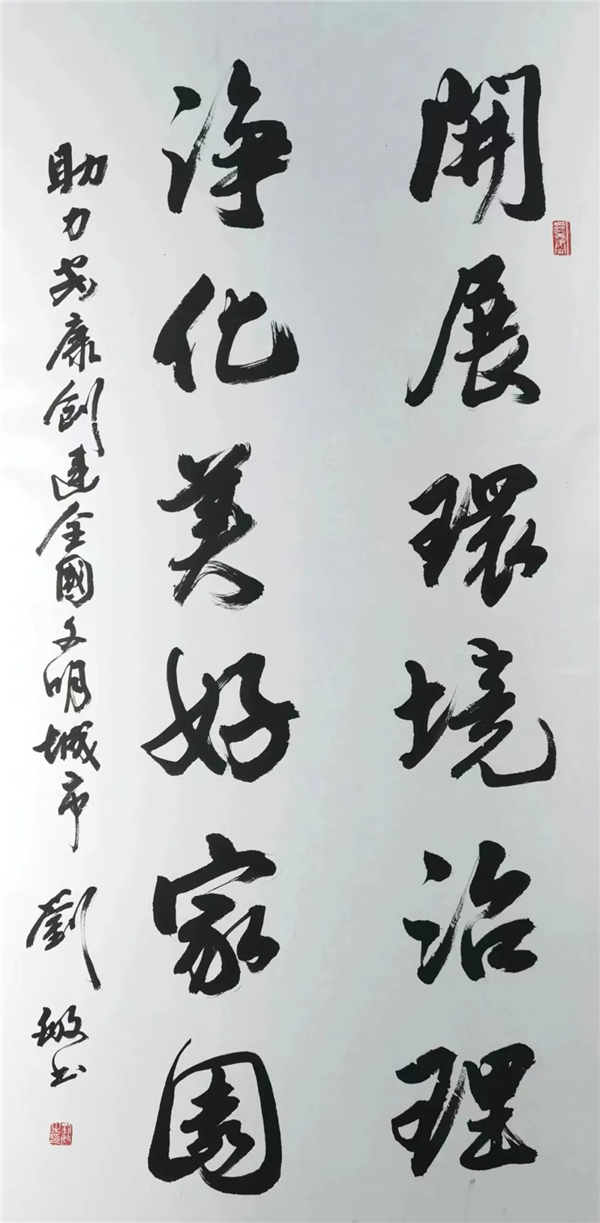 開展環境治理
淨化美好家園
助力安康創建全國文明城市
劉 书